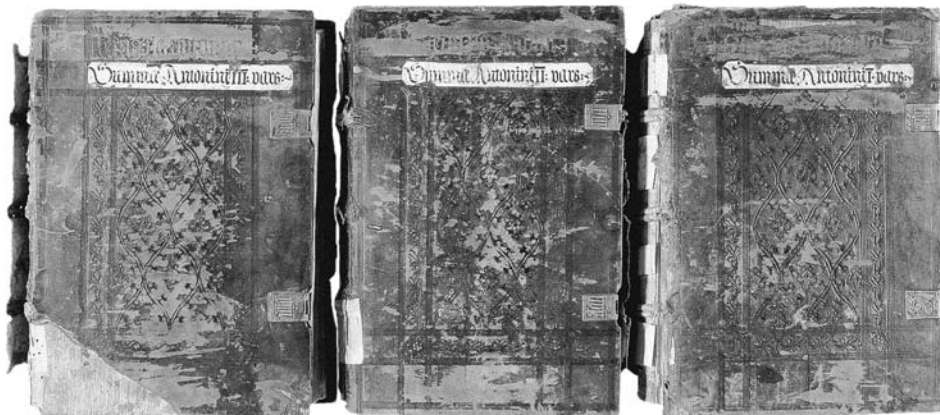 Summa Antonini III: pars:~
Summa Antonini II: pars:~
Summa Antonini I: pars:~